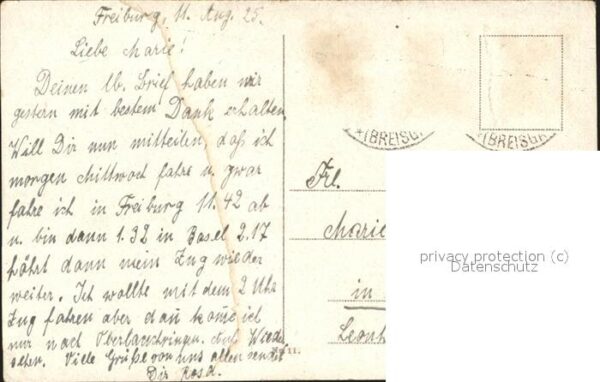 Freiburg, 11. Aug. 25.
Liebe Marie!
Deinen lb. Brief haben wir
gestern mit bestem Dank erhalten
Will Dir nun mitteilen, daß ich
morgen Mittwoch fahre u. zwar
fahre ich in Freiburg 11.42 ab
u. bin dann 1.32 in Basel 2.17
fährt dann mein Zug wieder
weiter. Ich wollte mit dem 2 Uhr
Zug fahren aber dan kome ich
nur nach Auf Wieder
sehen. Viele Grüße von uns allen sendet
Dir Rosa.
*(BREISG.
*(BREISG.
Frl.
Marie
in
Leonh
11.
privacy protection (c)
Datenschutz